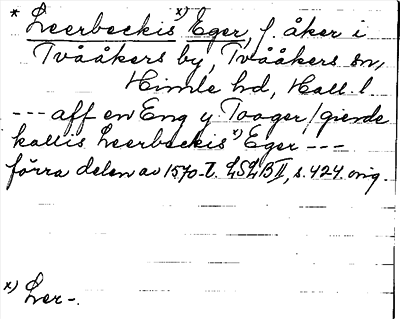 * Leerbeckis x) Eger, f. åker i
Tvååkers by, Tvååkers sn,
Himle hd, Hall. l.
--- aff en Eng y Toager, / giende
kallis Leerbeckis x) Eger ---
förra delen av 1570-t. LSLB II, s. 424. orig.
x) Ler-.